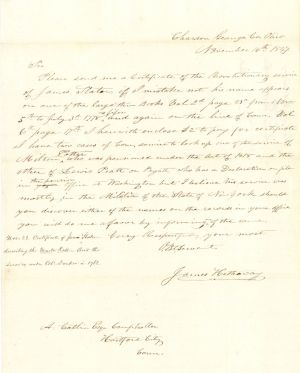 Chardon Geauga Co. Ohio
November 16th 1857
Sir
Please send me a Certificate of the Revolutionary service
of James Slater if I mistake not his name appears
on one of the large Books Vol 2d page 25 from
5th to July 3d 1778 and again on the line of Conn. Vol
6th page 17th I herewith enclose $2 to pay for certificate
I have two cases of Conn. service to look up one of the service of
who was pensioned under the Act of 1818 and the
other of Lewis Pratt or Pyatt who has a Declaration on file
in the office at Washington but I believe his service was
mostly in the Militia of the State of New York should
you discover either of the names on the records in your office
you will do me a favor by informing of the same
Very Respectfully your most
Obt Servant
James Hathaway
Nov. 23. Certificate of
service under Col. 1782
A. Catlin Esqr Comptroller
Hartford City
Conn.